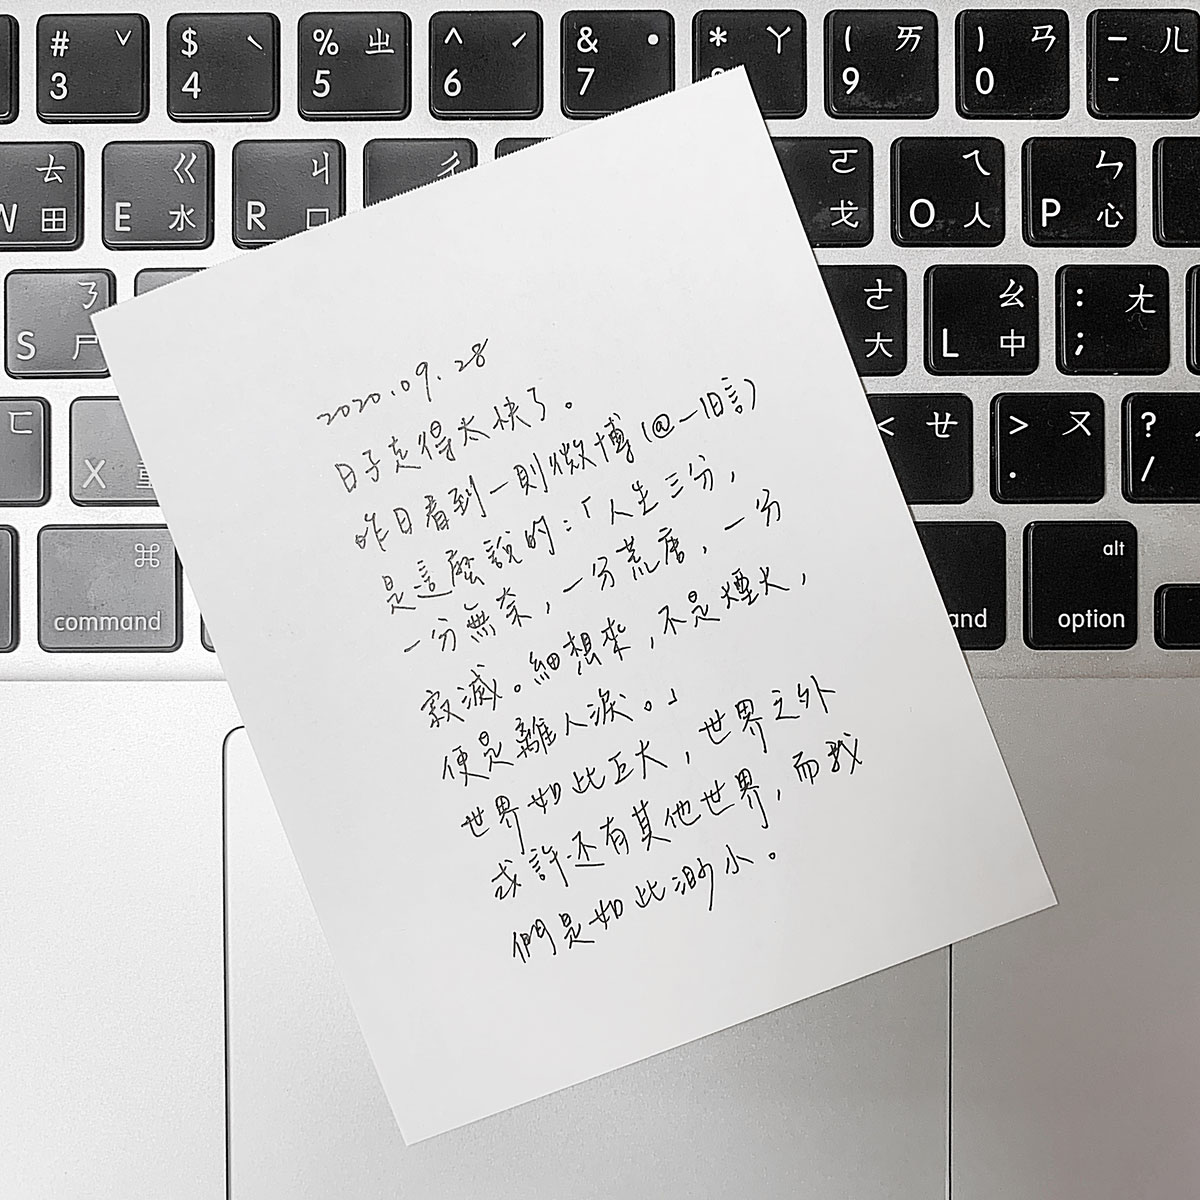 # ˇ 3
$ ˋ 4
% ㄓ 5
^ ˊ 6
& ˙ 7
* ㄚ
( ㄞ 9
) ㄢ 0
– ㄦ -
W ㄊ 田
E ㄍ 水
R ㄐ 口
ㄔ
ㄛ 戈
O ㄟ 人
P ㄣ 心
S ㄋ 尸
ㄜ 大
L ㄠ 中
: ㄤ ;
ㄈ
X
< ㄝ
> ㄡ .
? /
⌘ command
alt option
2020.09.28
日子走得太快了。
昨日看到一則微博(@一旧言)
是這麼說的:「人生三分,
一分無奈,一分荒唐,一分
寂滅。細想來,不是煙火,
便是離人淚。」
世界如此巨大,世界之外
或許还有其他世界,而我
們是如此渺小。